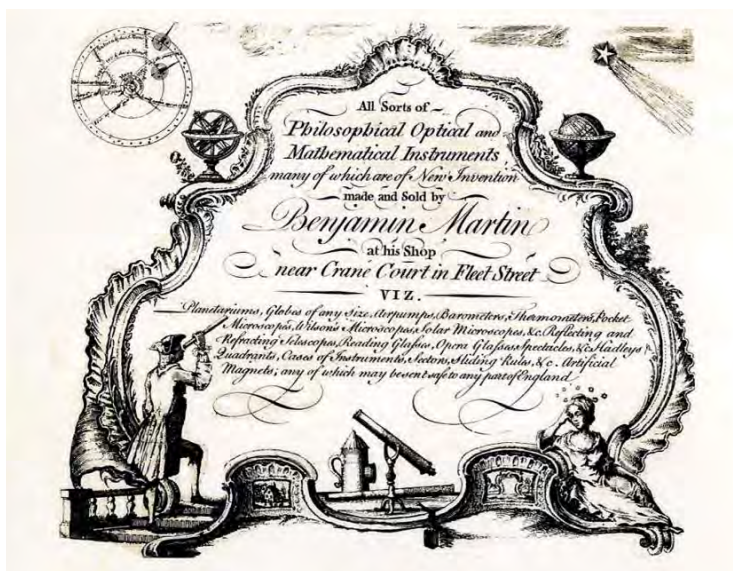 All Sorts of
Philosophical Optical and
Mathematical Instruments,
many of which are of New Invention
made and Sold by
Benjamin Martin
at his Shop
near Crane Court in Fleet Street
VIZ.
Planetariums, Globes of any Size, Airpumps, Barometers, Thermometers, Pocket
Microscopes, Wilson's Microscopes, Solar Microscopes, &c. Reflecting and
Refracting Telescopes, Reading Glasses, Opera Glasses, Spectacles, &c. Hadleys
Quadrants, Cases of Instruments, Sectors, Sliding Rules, &c. Artificial
Magnets; any of which may be sent safe to any part of England